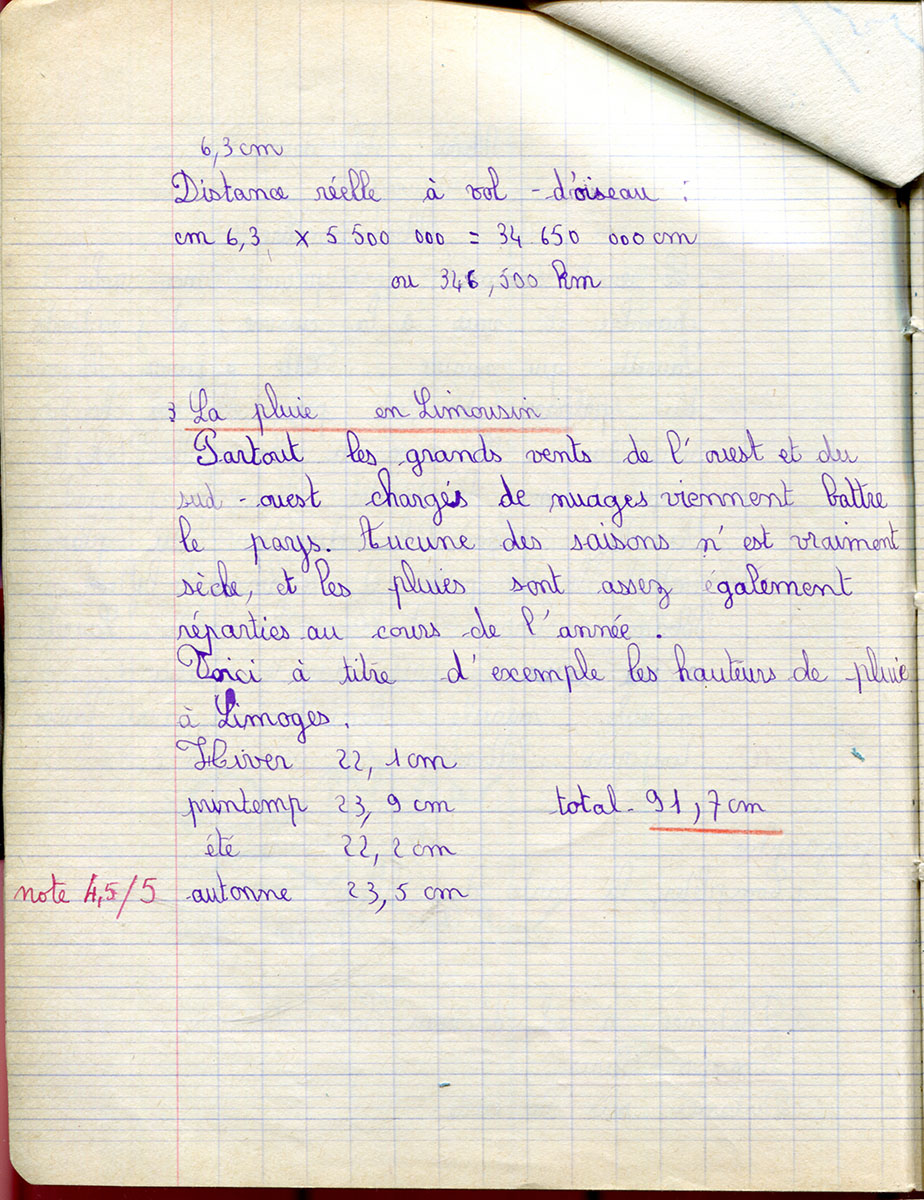 6,3 cm
Distance réelle à vol -d'oiseau :
cm 6,3 x 5 500 000 = 34 650 000 cm
ou 346,500 km
3 La pluie en Limousin
Partout les grands vents de l'ouest et du
sud-ouest chargés de nuages viennent battre
le pays. Aucune des saisons n'est vraiment
sèche, et les pluies sont assez également
réparties au cours de l'année.
Voici à titre d'exemple les hauteurs de pluie
à Limoges.
Hiver 22,1cm
printemp 23,9 cm total - 91,7cm
été 22,2 cm
note 4,5/5 autonne 23,5 cm